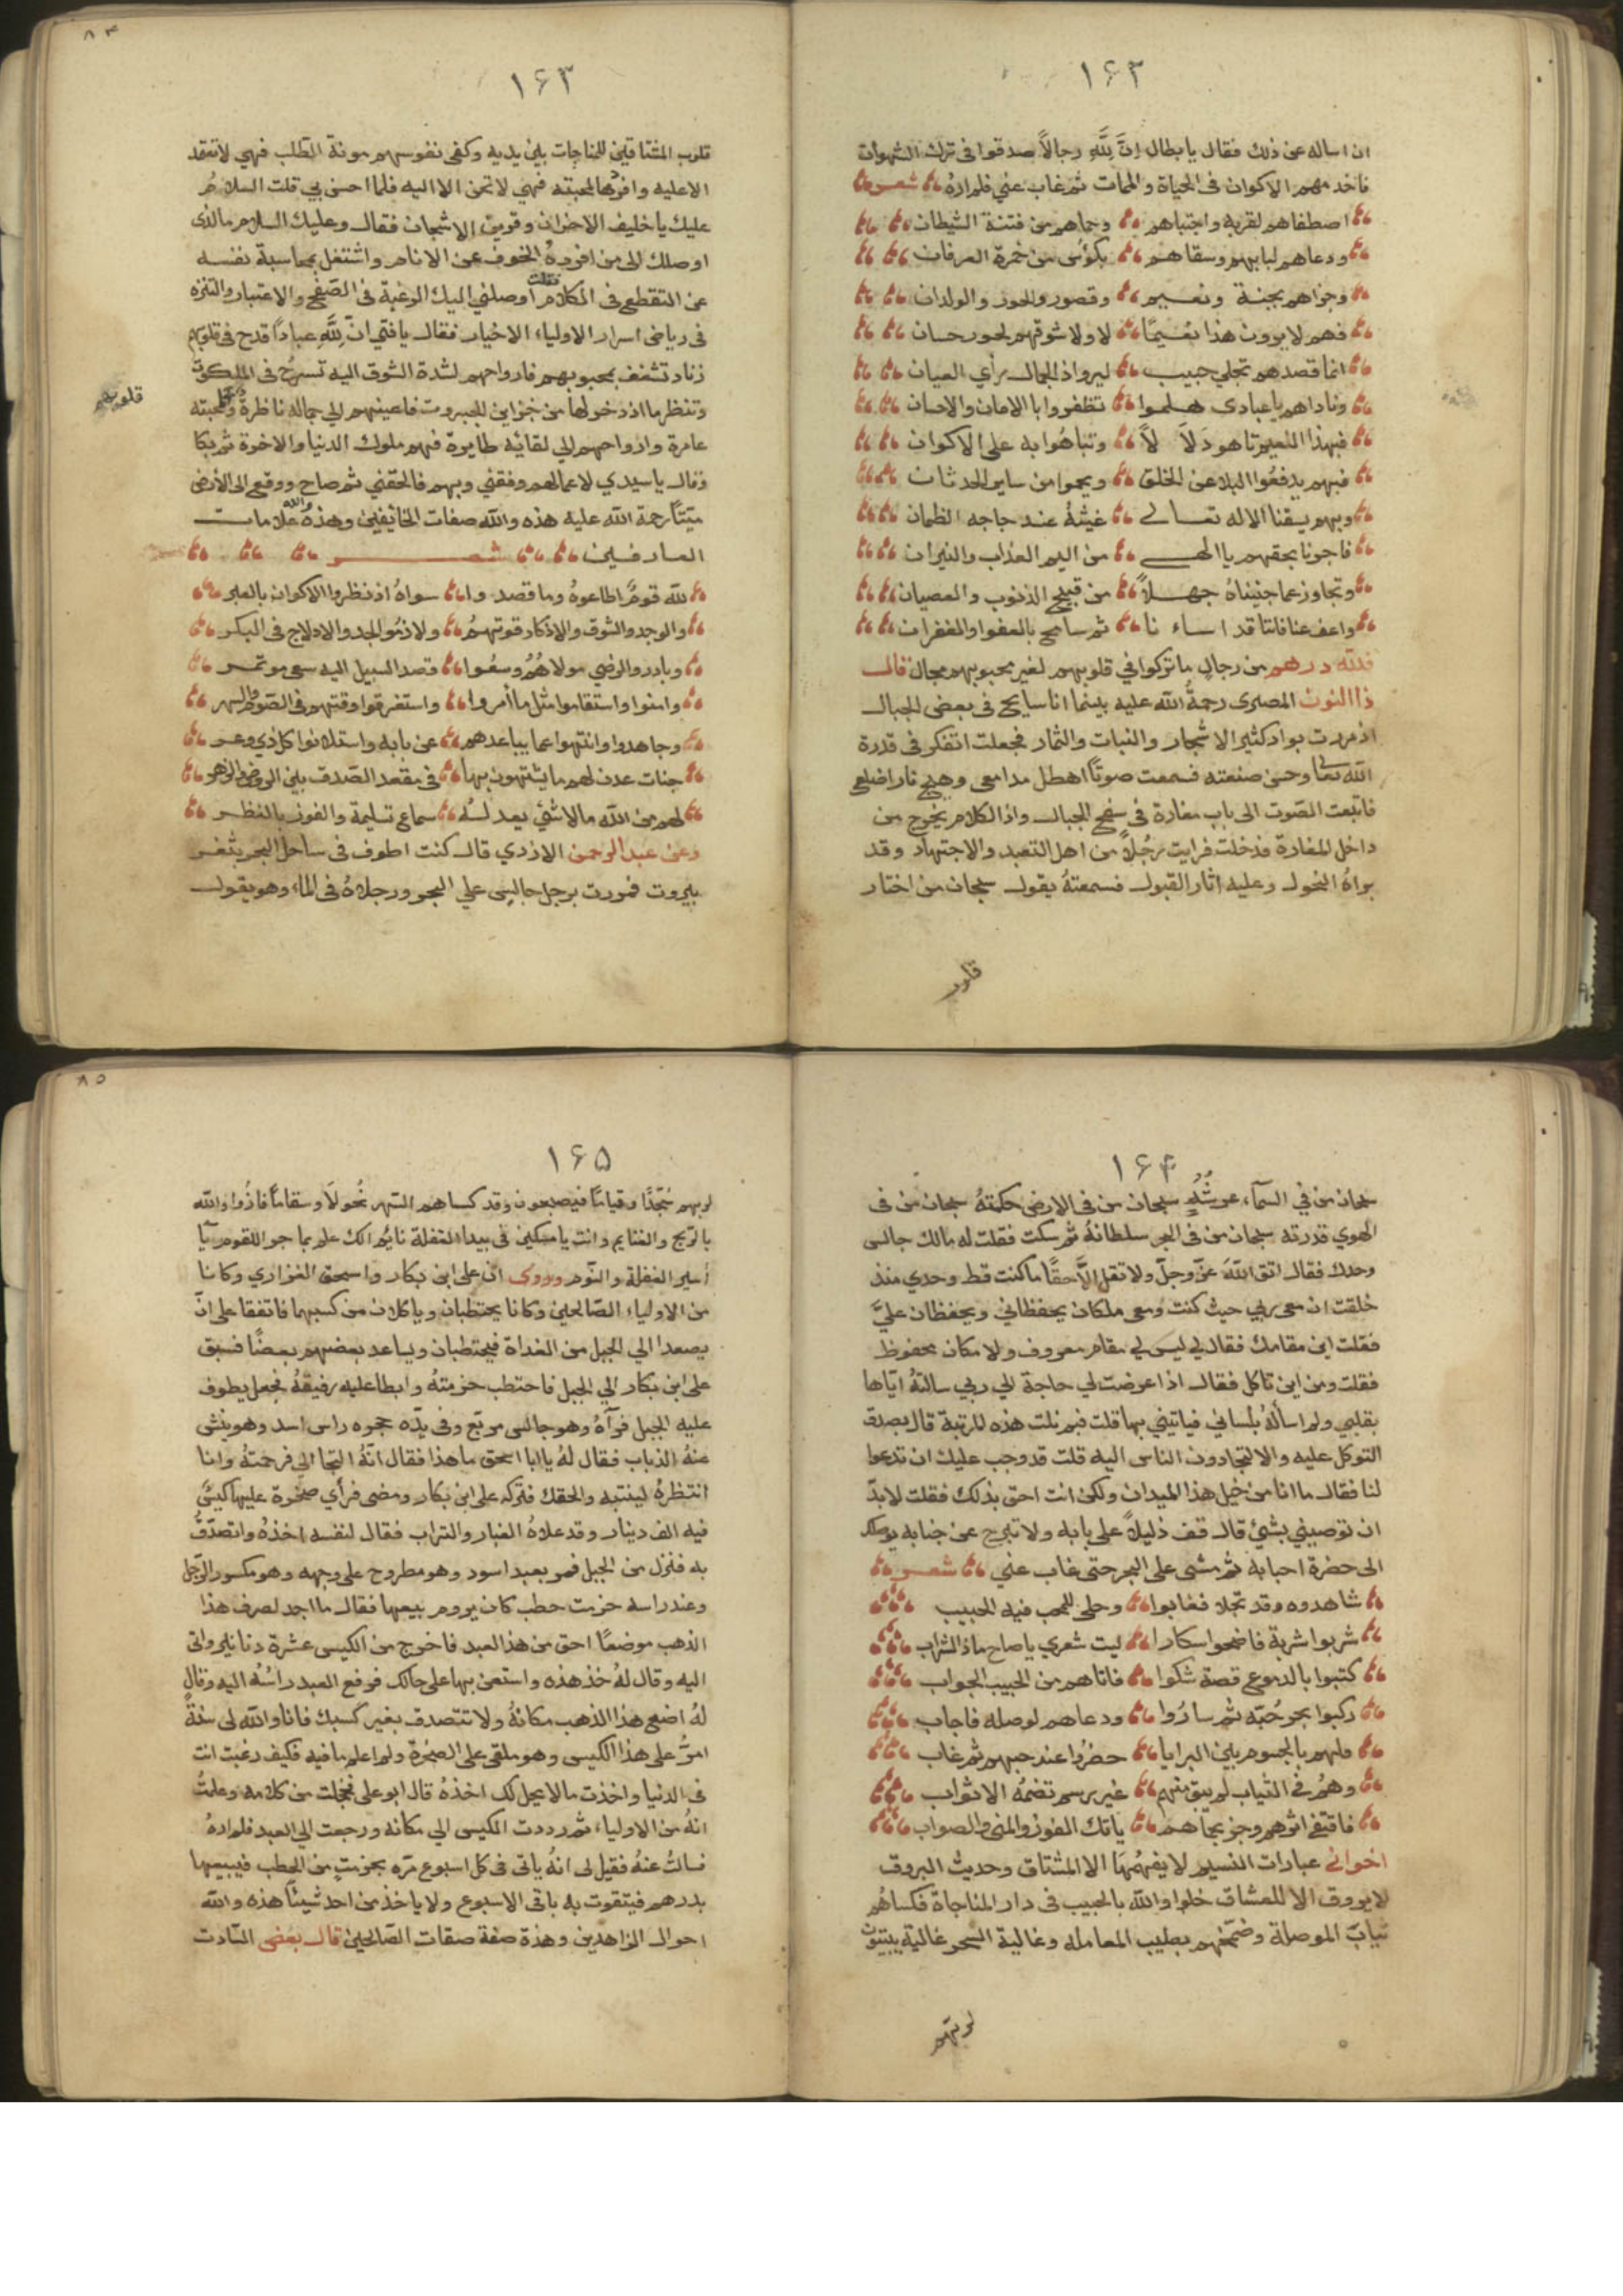 ١٦٢
ان اساله عن ذلك فقال يا بطال اِنَّ لِلَّهِ رجالاً صدقوا فى ترك الشهوات
فاخد مهم الاكوان فى الحياة والممات ثم غاب عني فلم اراهُ شعر
اصطفاهم لقربه واجتباهم وحماهم من فتنة الشيطان
ودعاهم لبابهم وسقاهم بكؤس من خمرة العرفان
وجزاهم بجنة ونعيم وقصور والحور والولدان
فهم لا يرون هذا نعيمًا لا ولا شوقهم لحور حسان
انما قصدهم تجلي حبيب ليروا ذا الجمال براي العيان
وناداهم يا عبادى هلموا تظفروا بالامان والاحسان
فبهذا النعيم تاهو دَلاَلاً وتباهُوا به على الاكوان
فبهم يدفعُوا البلا عن الخلق ويحموا من ساير الحدثان
وبهم يسقنا الاله تعالى غيثهُ عند حاجه الظمان
فاجرنا بحقهم يا الهى من اليم العذاب والنيران
وتجاوز عما جنيناهُ جهلاً من قبيح الذنوب والعصيان
واعف عنا فاننا قد اساءنا ثم سامح بالعفوا والغفران
فلله درهم من رجال ما تركوا في قلوبهم لغير محبوبهم مجال قال
ذا النون المصرى رحمةُ الله عليه بينما انا سايح فى بعض الجبال
اذ مررت بواد كثير الاشجار والنبات والثمار فجعلت اتفكر فى قدرة
الله تعا وحسن صنعته فسمعت صوتًا اهطل مدامعى وهيج نار اضلعى
فاتبعت الصوت الى باب مغارة فى سفح الجبال واذا الكلام يخرج من
داخل المغارة فدخلت فرايت رجُلاً من اهل التعبد والاجتهاد وقد
براهُ النحول وعليه اثار القبول فسمعتهُ يقول سبحان من اختار
قلوب
٨٤
١٦٣
قلوب المشتاقين للمناجات بين يديه وكفى نفوسهم مونة الطلب فهي لا تعتقد
الا عليه وافردها لمحبته فهي لا تحن الا اليه فلما احسن بي قلت السلامُ
عليك يا حليف الاحزان وقرين الاشجان فقال وعليك السلام ما الذى
اوصلك الى من افردهُ الخوف عن الانام واشتغل بمحاسبة نفسه
عن التقطع فى الكلام فقلت اوصلني اليك الرغبة فى الصفح والاعتبار والتنزه
فى رياض اسرار الاولياء الاخيار فقال يا فتي انّ لِلَّهِ عبادًا قدح فى قلوبهم
زناد تشغف بمحبوبهم فارواحهم لشدة الشوق اليه تسرحُ فى الملكوت
وتنظر ما اذخر لها من خزاين الجبروت فاعينهم الى جماله ناظرة ومحبته
قلوبهم
عامرة وارواحهم الي لقائه طايرة فهم ملوك الدنيا والاخرة ثم بكا
وقال يا سيدي لاعمالهم وفقني وبهم فالحقني ثم صاح ووقع الى الأرض
ميتًا رحمة الله عليه هذه والله صفات الخايفين وهذهُ والله علامات
العارفين شعر
لله قومٌ اطاعوهُ وما قصدوا سواهُ اذ نظروا الاكوان بالعبر
والوجد والشوق والاذكار قوتهمُ ولازمُو الجد والادلاج فى البكر
وبادر والرضي مولاهُمُ وسعُوا وقصد السبيل اليه سعى موتمر
وامنوا واستقاموا مثل ما اُمروا واستغرقوا وقتهم فى الصوم والسهر
وجاهدوا وانتهوا عما يباعدهم عن بابه واستلانوا كل ذي وعر
جنات عدن لهم ما يشتهون بها فى مقعد الصدق بين الروض والزهر
لهم من الله ما لا شئ يعدلهُ سماع تسليمة والفوز بالنظر
وعن عبد الرحمن الازدي قال كنت اطوف فى ساحل البحر بثغر
بيروت فمررت برجل جالس علي البحر ورجلاهُ فى الماء وهو يقول
١٦٤
سبحان من في السمآء عرشُهُ سبحان من فى الارض حكمتهُ سبحان من فى
الهوي قدرته سبحان من فى البحر سلطانهُ ثم سكت فقلت له مالك جالس
وحدك فقال اتق اللهَ عزّ وجلّ ولا تقل الاَّ حقًا ما كنت قط وحدي منذ
خلقت ان معى ربي حيث كنت ومعى ملكان يحفظاني ويحفظان عليَّ
فقلت اين مقامك فقال لي ليس لي مقام معروف ولا مكان محفوظ
فقلت ومن اين تاكل فقال اذا عرضت لي حاجة الي ربي سالتهُ اياها
بقلبي ولم اسألهُ بلساني فياتيني بها قلت فبم نلت هذه المرتبة قال بصدق
التوكل عليه والالتجا دون الناس اليه قلت قد وجب عليك ان تدعوا
لنا فقال ما انا من خيل هذا الميدان ولكن انت احق بذلك فقلت لا بدّ
ان توصيني بشئ قال قف ذليلاً على بابه ولا تبرح عن جنابه يوصلك
الى حضرة احبابه ثم مشى على البحر حتى غاب عني شعر
شاهدوه وقد تجلا فغابوا وحلى للمحب فيه الحبيب
شربوا شربة فاضحوا سكارا ليت شعري يا صاح ماذا الشراب
كتبوا بالدموع قصة شكوا فاتاهم من الحبيب الجواب
ركبوا بحر حُبّه ثم سارُوا ودعاهم لوصله فاجاب
ملهم بالجسوم بين البرايا حضرُوا عند حبهم ثم غاب
وهمُ في الثياب لم يبق منهم غير رسم تضمهُ الاثواب
فاقتفى اثرهم وجز بحماهم ياتك الفوز والمنى والصواب
اخوانى عبارات النسيم لا يفهمُهَا الا المشتاق وحديث البروق
لا يروق الا للعشاق خلوا والله بالحبيب فى دار المناجاة فكساهُم
ثيابَ الموصلة وضمّخهم بطيب المعامله وغالية السحر غالية يبيتون
لربهم
٨٥
١٦٥
لربهم سُجّدًا وقيامًا فيصبحون وقد كساهم السهر نُحولاً وسقامًا فازُوا والله
بالربح والغنايم وانت يا مسكين فى بيدا الغفلة نايم الك علم بما جرا للقوم يآ
أسير الغفلة والنّوم وروى ان على ابن بكار واسحق الفزاري وكانا
من الاولياء الصّالحين وكانا يحتطبان وياكلان من كسبهما فاتفقا على انّ
يصعدا الي الجبل من الغداة فيحتطبان ويساعد بعضهم بعضًا فسبق
على ابن بكار الي الجبل فاحتطب حزمتهُ وابطا عليه رفيقهُ فجعل يطوف
عليه الجبل فرآهُ وهو جالس مربّع وفى يدّه حجره راس اسد وهو ينشى
عنهُ الذباب فقال لهُ يا ابا اسحق ما هذا فقال انّهُ التجا الي فرحمتهُ وانا
انتظرهُ لينتبه والحقك فتركه على ابن بكار ومضى فرأي صخرة عليها كيسٌ
فيه الف دينار وقد علاهُ الغبار والتراب فقال لنفسه اخذهُ واتصدّقُ
به فنزل من الجبل فمر بعبد اسود وهو مطروح على وجهه وهو مكسور الرّجل
وعند راسه حزمت حطب كان يروم بيعها فقال ما اجد لصرف هذا
الذهب موضعًا احق من هذا العبد فاخرج من الكيس عشرة دنانير واتى
اليه وقال لهُ خذ هذه واستعن بها على حالك فرفع العبد راسُه اليه وقال
لهُ اضع هذا الذهب مكانهُ ولا تتصدق بغير كسبك فانا والله لى سنةٌ
امرُّ على هذا الكيس وهو ملقى على الصخرة ولم اعلم ما فيه فكيف رغبت انت
فى الدنيا واخذت ما لا يحل لك اخذهُ قال ابو على فخجلت من كلامه وعلمتُ
انهُ من الاولياء ثم رددت الكيس الي مكانه ورجعت الي العبد فلم ارهُ
فسالتُ عنهُ فقيل لى انهُ ياتى فى كل اسبوع مرّه بحزمتٍ من الحطب فيبيعها
بدرهم فيتقوت به باقى الاسبوع ولا ياخذ من احد شيئًا هذه والله
احوال الزاهدين وهذة صفة صفات الصّالحين قال بعضى السّادت